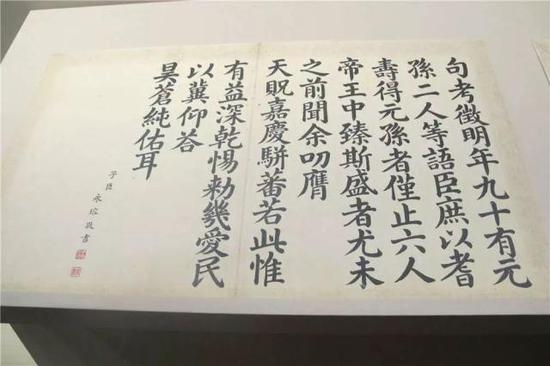 句考徵明年九十有元
孫二人等語臣庶以耆
壽得元孫者僅止六人
帝王中臻斯盛者尤未
之前聞余叨膺
天貺嘉慶駢蕃若此惟
有益深乾惕勑幾愛民
以冀仰荅
昊蒼純佑耳
子臣永瑢敬書